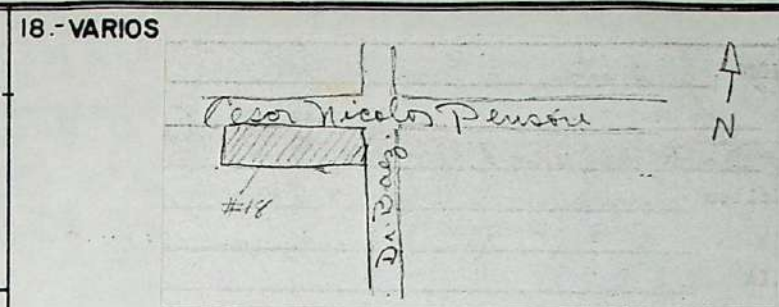 18.-VARIOS
Cesar Nicolos Penson
N
Dr. Baez.
#18